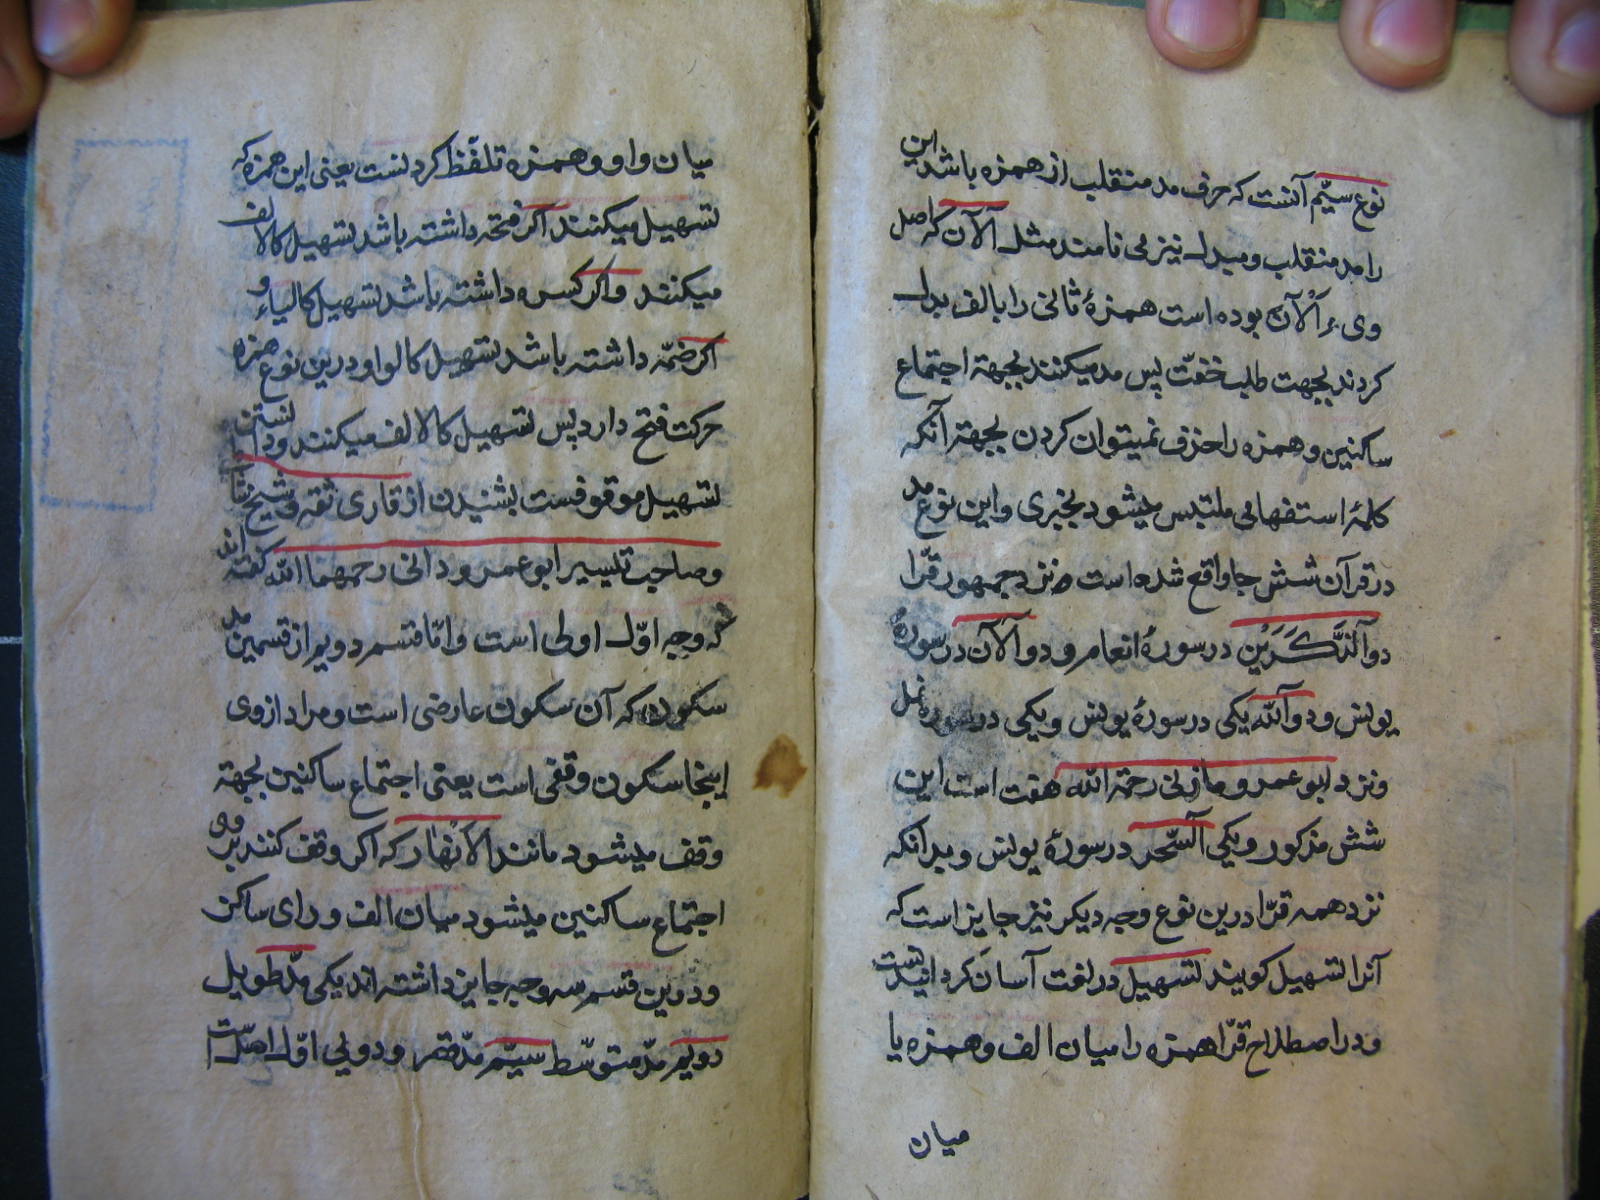 نوع سیّم آنست که حرف مد منقلب از همزه باشد این
را مد منقلب و مبدل نیز می نامند مثل آلآن که اصل
وی ءَاَلْآن بوده است همزهٔ ثانی را بالف بدل
کردند بجهت طلب خفّت پس مد میکنند بجهة اجتماع
ساکنین و همزه را حذف نمیتوان کردن بجهة آنکه
کلمهٔ استفهامی ملتبس میشود بخبری و این نوع مد
در قرآن شش جا واقع شده است نزد جمهور قرّا
دو آلذَّکَرَیْن در سورهٔ انعام و دو آلآن در سورهٔ
یونس و دو آللّه یکی در سورهٔ یونس و یکی در سوره نمل
و نزد ابو عمرو مازنی رحمة اللّه هفت است این
شش مذکور و یکی آلسّحر در سورهٔ یونس و بدانکه
نزد همه قرّا درین نوع وجه دیکر نیز جایز است که
آنرا تسهیل کویند تسهیل در لغت آسان کردانیدنست
و در اصطلاح قرّا همزه را میان الف و همزه یا
میان
میان واو و همزه تلفّظ کردنست یعنی این همزه که
تسهیل میکنند اکر فتحه داشته باشد تسهیل کالالف
میکنند و اکر کسره داشته باشد تسهیل کالیاء و
اکر ضمّه داشته باشد تسهیل کالواو درین نوع همزه
حرکت فتح دارد پس تسهیل کالالف میکنند و دانستن
تسهیل موقوفست بشنیدن از قاری ثقه و شیخ شا
و صاحب تیسیر ابو عمرو دانی رحمهما اللّه کفته اند
که وجه اوّل اولی است و امّا قسم دویم از قسمین مد
سکون که آن سکون عارضی است و مراد از وی
اینجا سکون وقفی است یعنی اجتماع ساکنین بجهة
وقف میشود مانند الانْهٰار که اکر وقف کنند بر وی
اجتماع ساکنین میشود میان الف و رای ساکن
و درین قسم سه وجه جایز داشته اند یکی مدّ طویل
دویم مدّ متوسّط سیّم مدّ قصر و دویی اوّل اصل است